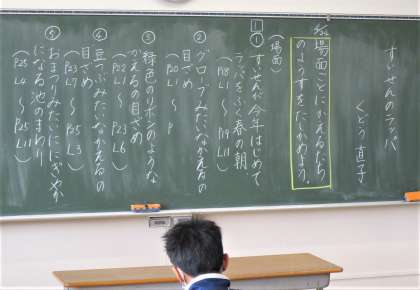 すいせんのラッパ
くどう直子
め 場面ごとにかえるたち
のようすをたしかめよう。
（場面）
1 ① すいせんが今年はじめて
ラッパをふく春の朝
（P18 L1 〜 P19 L11）
② グローブみたいなかえるの
目ざめ
（P20 L1 〜 P
③ 緑色のリボンのような
かえるの目ざめ
（P22 L1 〜 P23 L6）
④ 豆つぶみたいなかえるの
目ざめ
（P23 L7 〜 P25 L3）
⑤ おまつりみたいににぎやか
になる池のまわり
（P25 L4 〜 P25 L11）